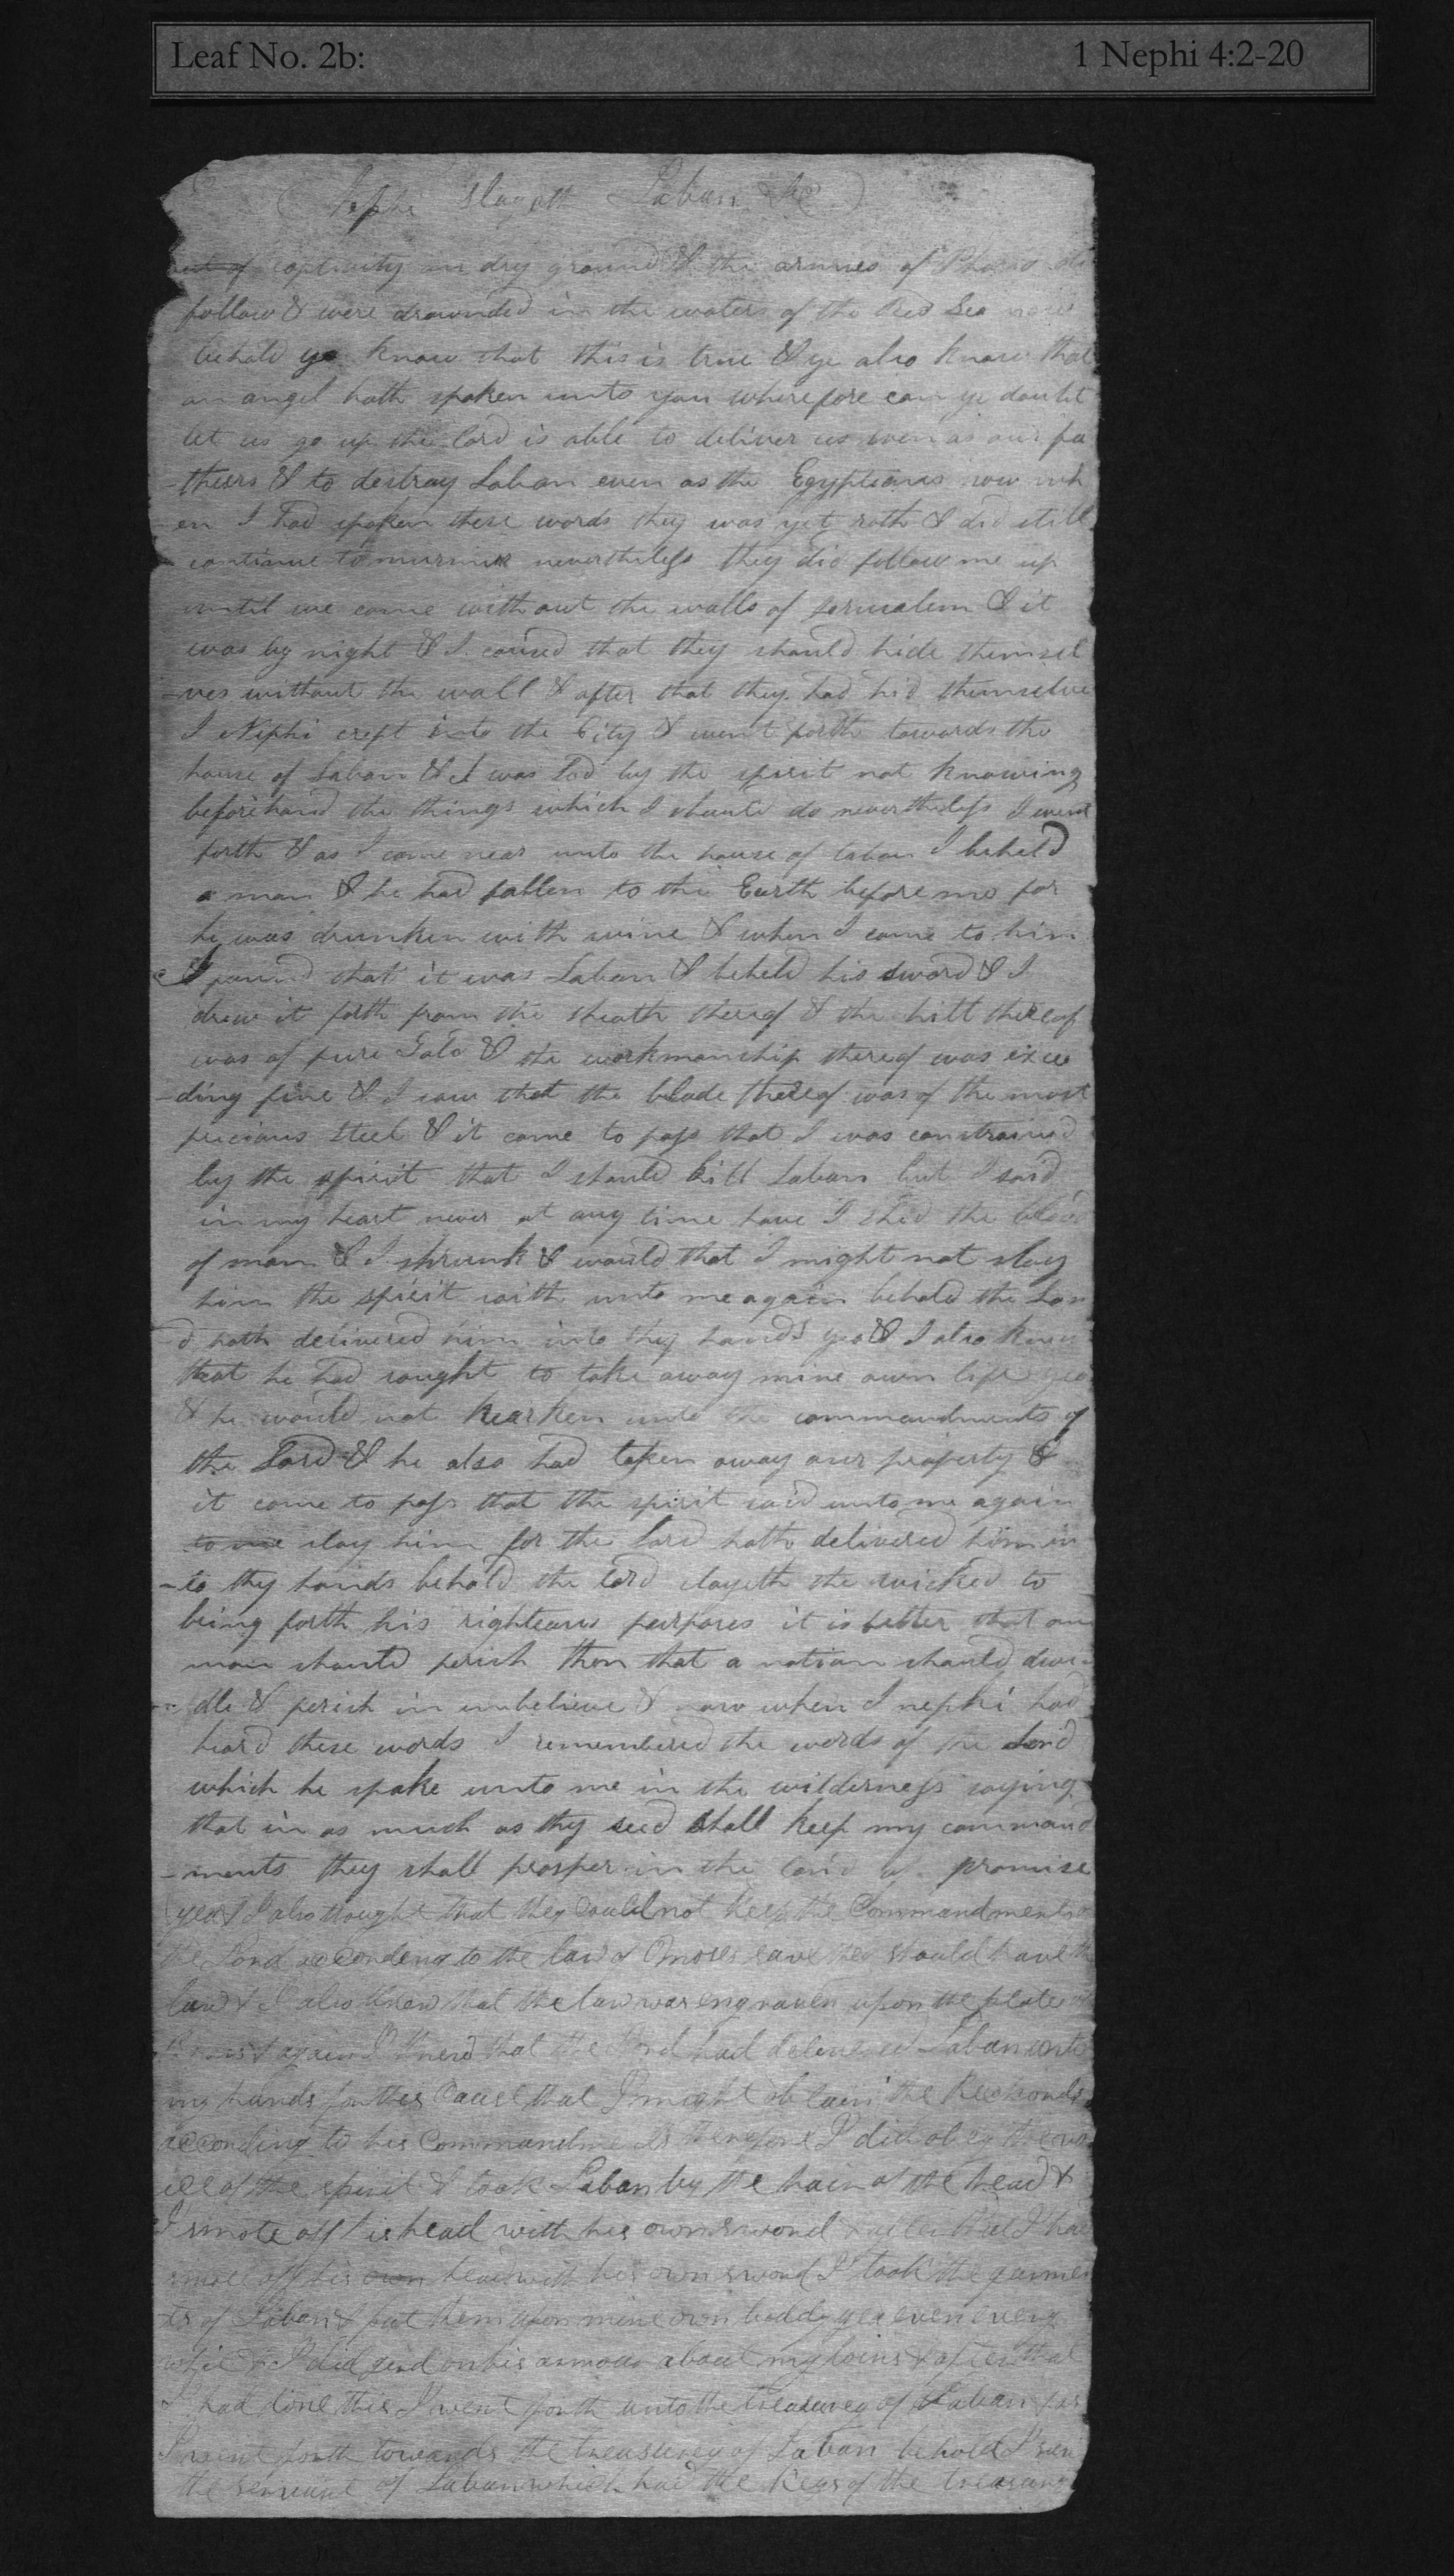 Leaf No. 2b: 1 Nephi 4:2-20
( Nephi Slayeth Laban &C )
out of captivity on dry ground & the armies of Pharo did
follow & were drownded in the waters of the Red Sea now
behold ye know that this is true & ye also know that
an angel hath spoken unto you wherefore can ye doubt
let us go up the lord is able to deliver us even as our fa
-thers & to destroy Laban even as the Egyptians now wh
-en I had spoken these words they was yet roth & did still
continue to murmur nevertheless they did follow me up
until we came without the walls of Jerusalem & it
was by night & I caused that they should hide themsel
-ves without the wall & after that they had hid themselves
I Nephi crept into the City & went forth towards the
house of Laban & I was led by the spirit not knowing
beforehand the things which I should do nevertheless I went
forth & as I came near unto the house of Laban I beheld
a man & he had fallen to the Earth before me for
he was drunken with wine & when I came to him
I found that it was Laban & beheld his sword & I
drew it forth from the sheath thereof & the hilt thereof
was of pure Gold & the workmanship thereof was excee
-ding fine & I saw that the blade thereof was of the most
precious steel & it came to pass that I was constrained
by the spirit that I should kill Laban but I said
in my heart never at any time have I shed the blood
of man & I shrunk & would that I might not slay
him the spirit saith unto me again behold the Lor
-d hath delivered him into thy hands yea & I also knew
that he had sought to take away mine own life yea
& he would not hearken unto the commandments of
the Lord & he also had taken away our property &
it came to pass that the spirit said unto me again
to me slay him for the Lord hath delivered him in
-to thy hands behold the lord slayeth the wicked to
bring forth his righteous purposes it is better that one
man should perish then that a nation should dwin
-dle & perish in unbelieve & now when I nephi had
heard these words I remembered the words of the Lord
which he spake unto me in the wilderness saying
that in as much as thy seed shall keep my command
-ments they shall prosper in the land of promise
yea & I also thought that they could not keep the Commandments of
the Lord according to the law of Moses save they should have the
law & I also knew that the law was engraven upon the plates of
& again I knew that the Lord had delivered Laban unto
my hands for this Cause that I might obtain the Reckords
according to his Commandments therefore I did obey the vo
ice of the spirit & took Laban by the hair of the head &
I smote off his head with his own sword & after that I had
smote off his own head with his own sword I took the garmen
-ts of Laban & put them upon mine own boddy yea even every
whit & I did gird on his armour about my loins & after that
I had done this I went forth unto the treasurey of Laban & as
I went forth towards the treasurey of Laban behold I saw
the servant of Laban which had the keys of the treasurey